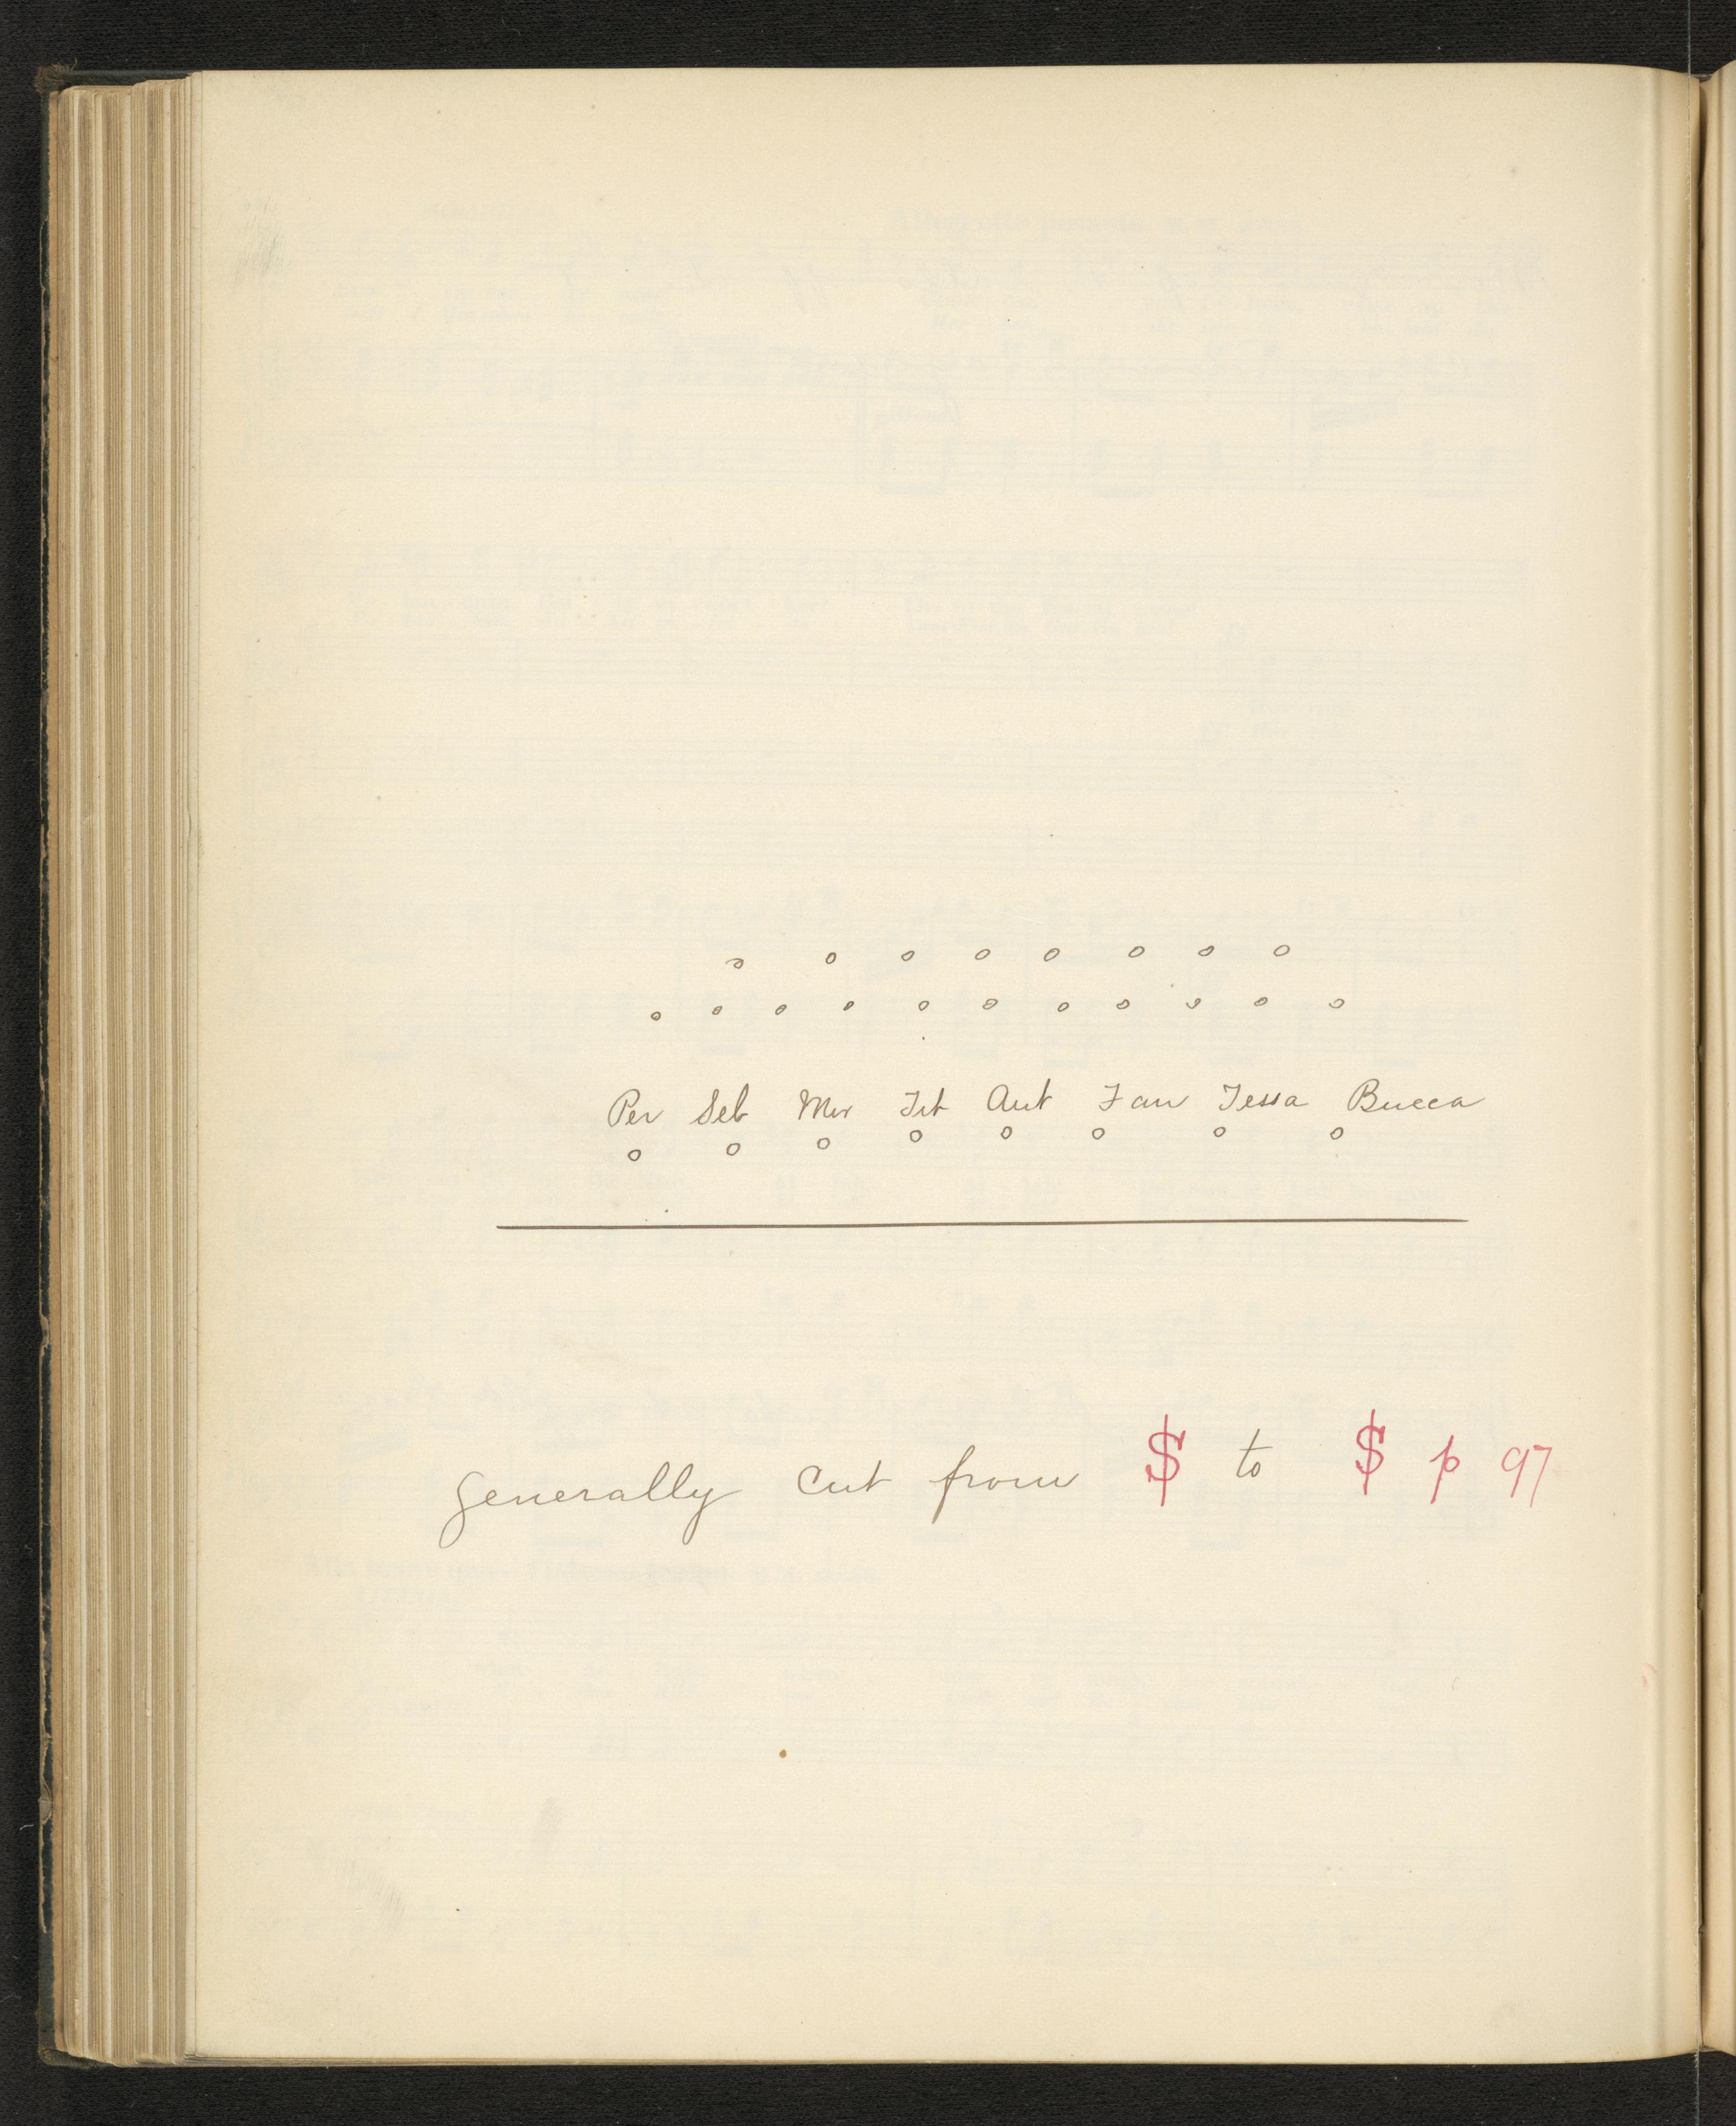 Per Seb Mer Tit Aut Fau Tessa Bucca
generally cut from $ to $ p 97